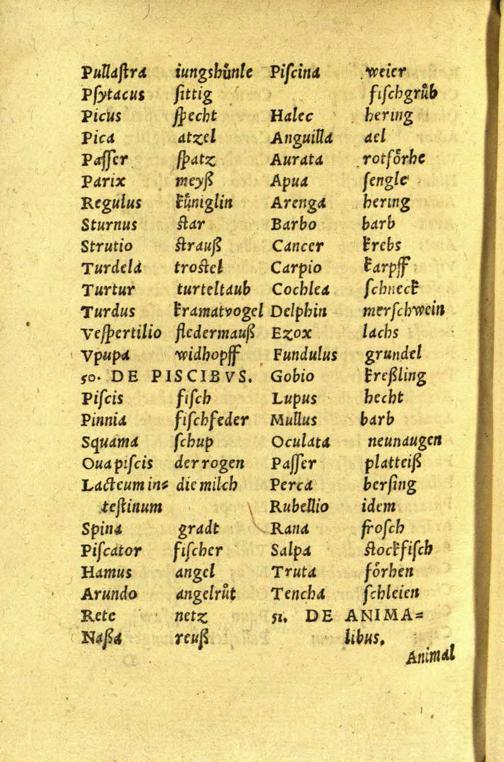 Pullaſtra iungshůnle
Pſytacus ſittig
Picus ſpecht
Pica atzel
Paſſer ſpatz
Parix meyß
Regulus kůniglin
Sturnus ſtar
Strutio ſtrauß
Turdela troſtel
Turtur turteltaub
Turdus kramatvogel
Veſpertilio fledermauß
Vpupa widhopff
50. DE PISCIBVS.
Piſcis fiſch
Pinnia fiſchfeder
Squama ſchup
Oua piſcis der rogen
Lacteum in= die milch
teſtinum
Spina gradt
Piſcator fiſcher
Hamus angel
Arundo angelrůt
Rete netz
Naßa reuß
Piſcina weier
fiſchgrůb
Halec hering
Anguilla ael
Aurata rotfőrhe
Apua ſengle
Arenga hering
Barbo barb
Cancer krebs
Carpio karpff
Cochlea ſchneck
Delphin merſchwein
Ezox lachs
Fundulus grundel
Gobio kreßling
Lupus hecht
Mullus barb
Oculata neunaugen
Paſſer platteiß
Perca berſing
Rubellio idem
Rana froſch
Salpa ſtockfiſch
Truta főrhen
Tencha ſchleien
51. DE ANIMA=
libus.
Animal